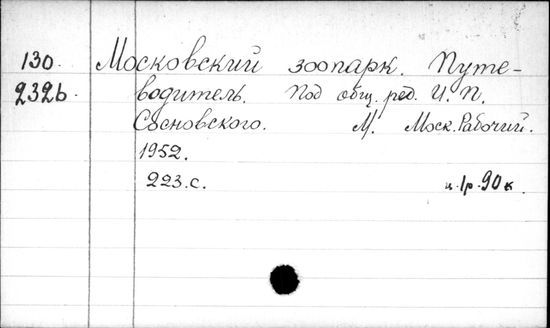 130. Московский зоопарк. Путе-
232б водитель. Под общ. ред. И. П.
Сосновского. М. Моск. Рабочий.
1952.
223.с. ц. 1р. 90к.